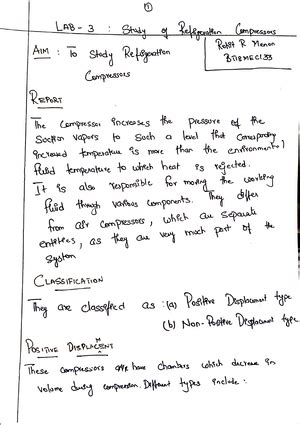 ①
LAB - 3 : Study of Refrigeration Compressors
Rohit R Menon
BT18MEC133
AIM : To Study Refrigeration
Compressors
REPORT
The compressor increases the pressure of the
suction vapors to such a level that corresponding
increased temperature is more than the environmental
fluid temperature to which heat is rejected.
It is also responsible for moving the working
fluid through various components. They differ
from air compressors, which are separate
entities, as they are very much part of the
system
CLASSIFICATION
They are classified as : (a) Positive Displacement type
(b) Non-Positive Displacement type
POSITIVE DISPLACEMENT
These compressors have chambers which decrease in
volume during compression. Different types include :